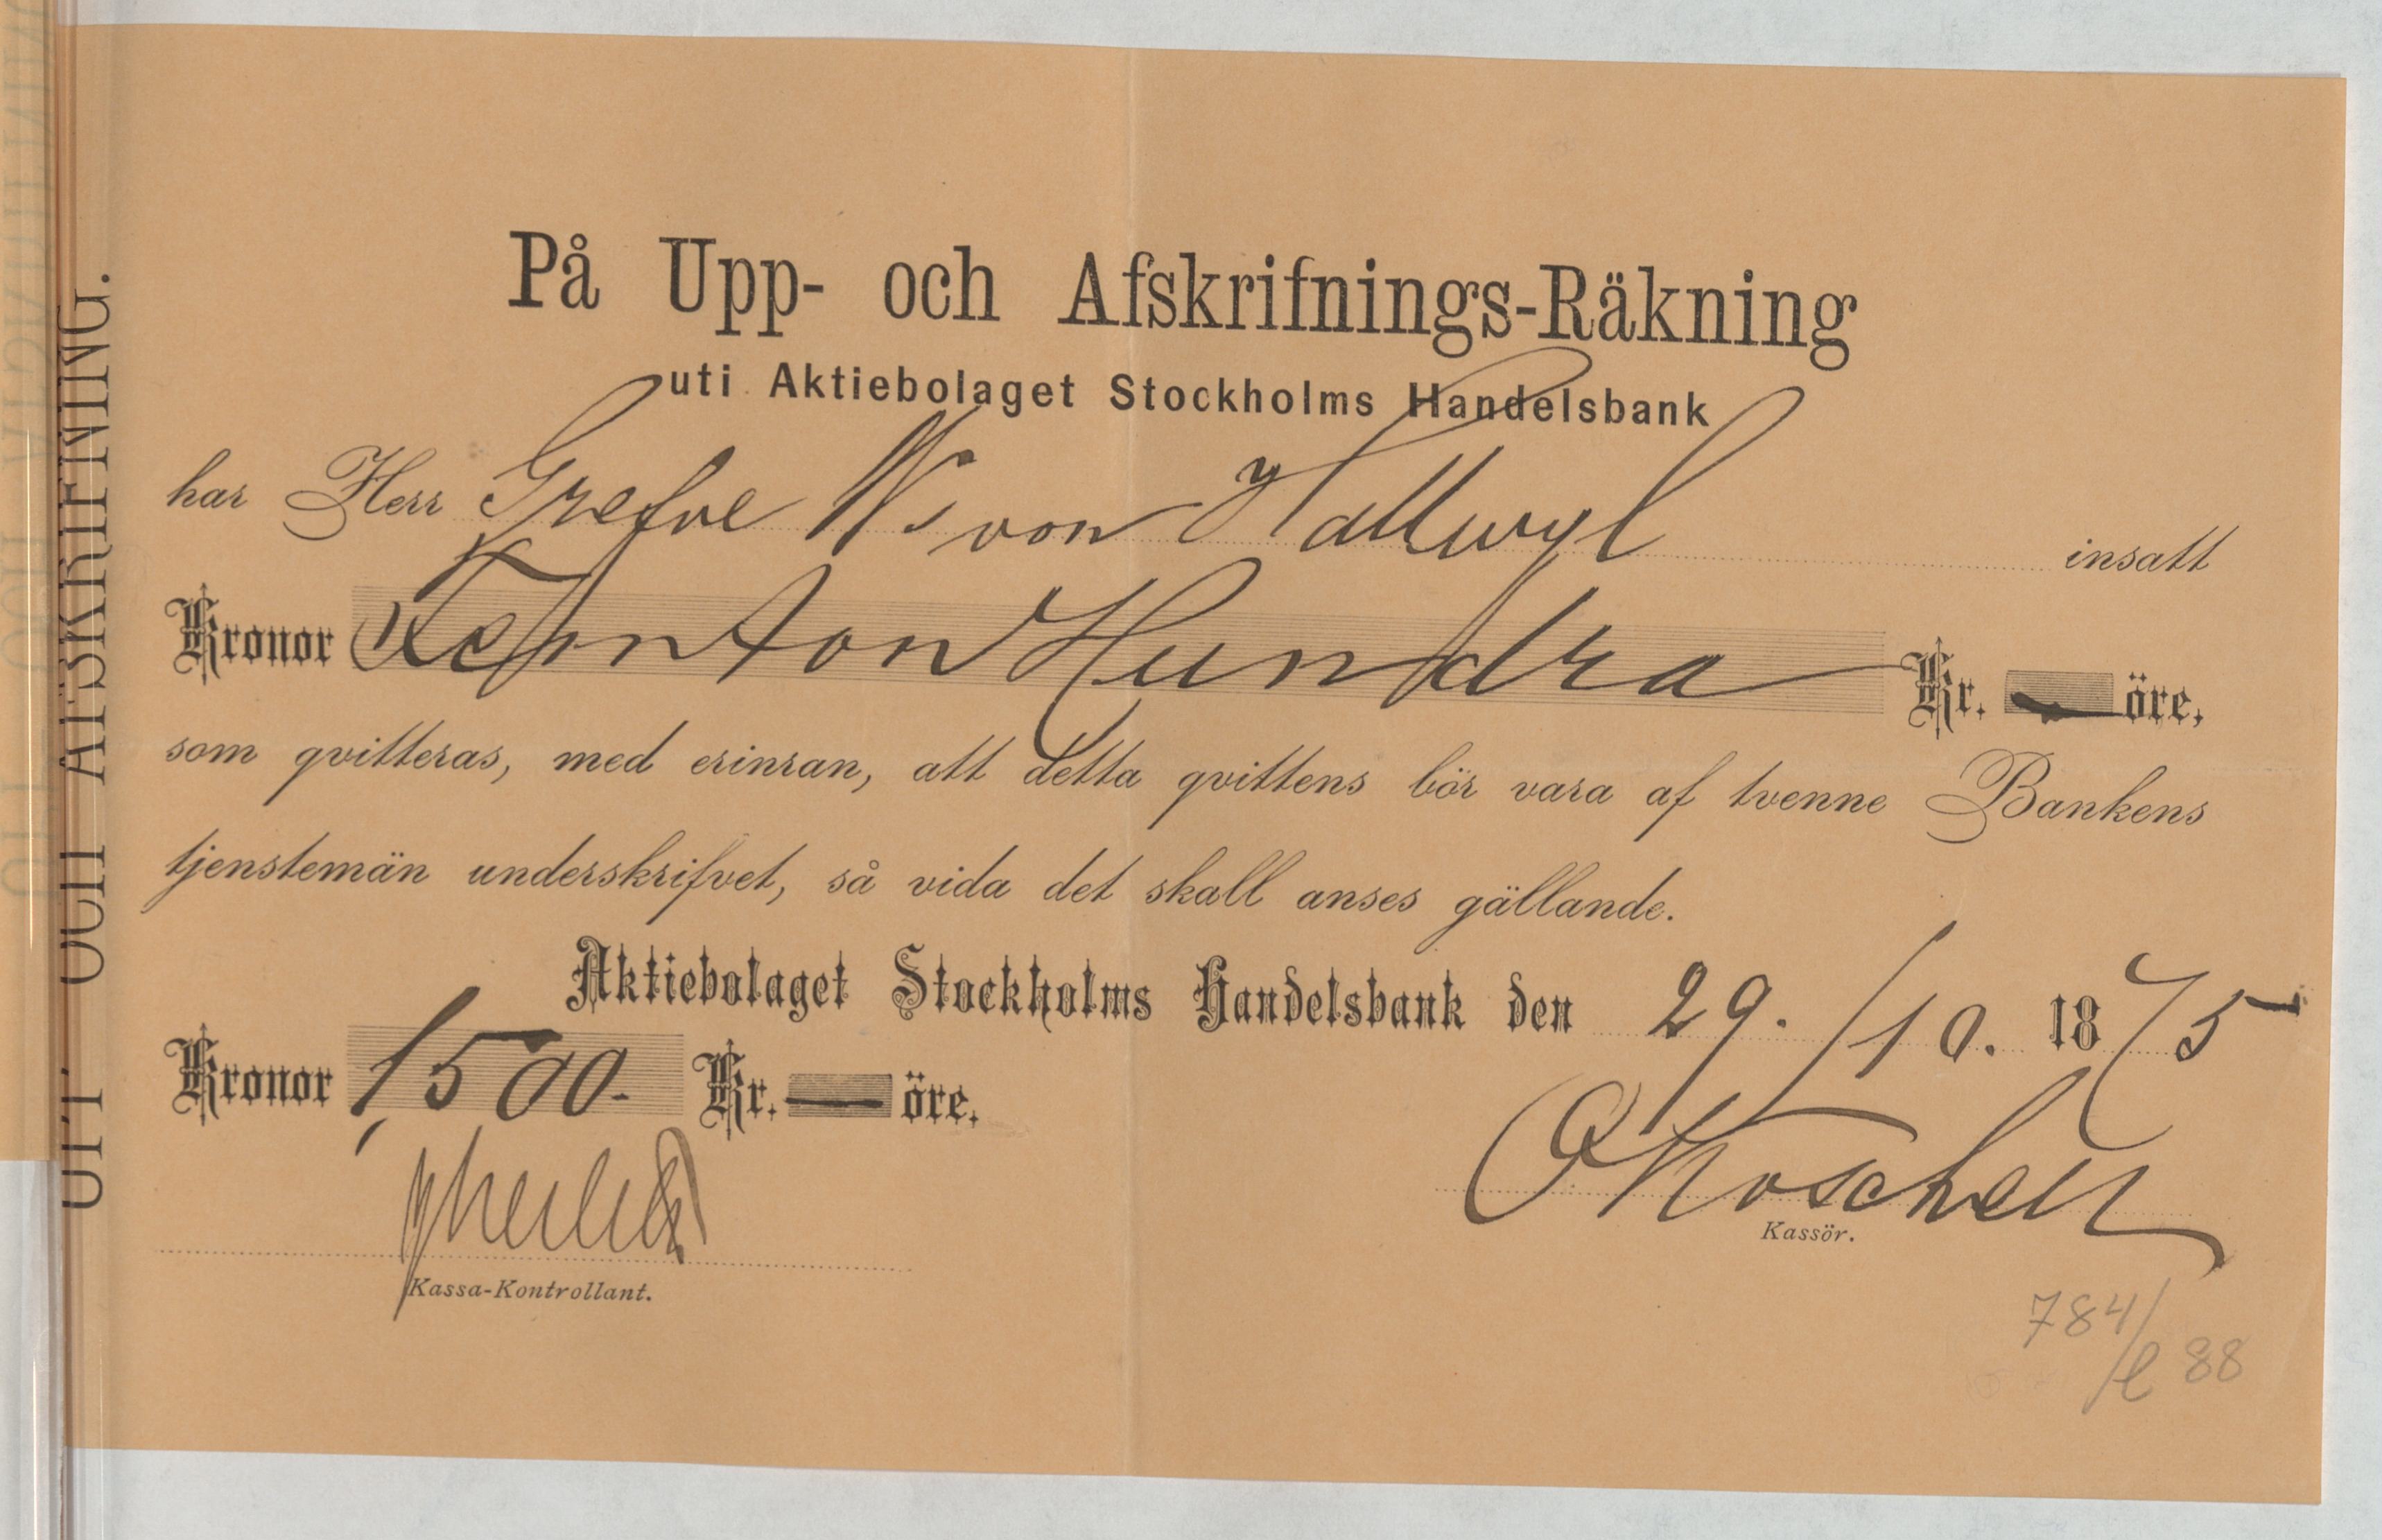 UPP- OCH AFSKRIFNING.
På Upp- och Afskrifnings-Räkning
uti Aktiebolaget Stockholms Handelsbank
har Herr Grefve W. von Hallwyl insatt
Kronor Femton Hundra Kr. — öre,
som qvitteras, med erinran, att detta qvittens bör vara af tvenne Bankens
tjenstemän underskrifvet, så vida det skall anses gällande.
Aktiebolaget Stockholms Handelsbank den 29./10. 1875
Kronor 1,500.- Kr. — öre.
Kassör.
Kassa-Kontrollant.
784/
l 88